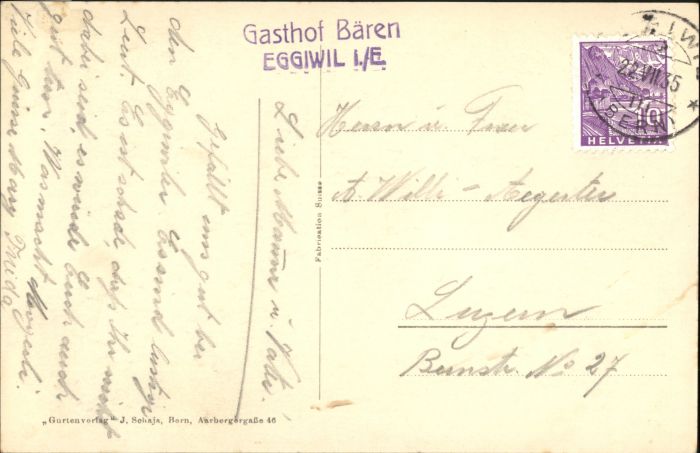 Gasthof Bären
EGGIWIL I./E.
22.VII.35
10
HELVETIA
Liebe Mama u. Vater!
Gefällt uns gut bei
den Eggiwiler. Es sind lustige
Leut. Es ist schade, dass Ihr nicht
dabei seid, es würde Euch auch
gut tun. Was macht
Viele Grüsse Mary Frieda
Herrn u. Frau
A. Willi-Aegerter
Luzern
Bernstr. No 27
Fabrication Suisse
„Gurtenverlag" J. Schaja, Bern, Aarbergergaße 46